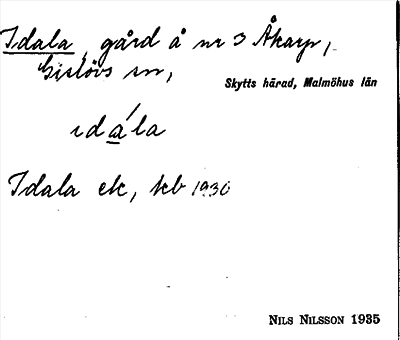 Idala, gård å nr 3 Åkarp,
Gislövs sn,
Skytts härad, Malmöhus län
ıdála
Idala ek, kb 1930
NILS NILSSON 1935